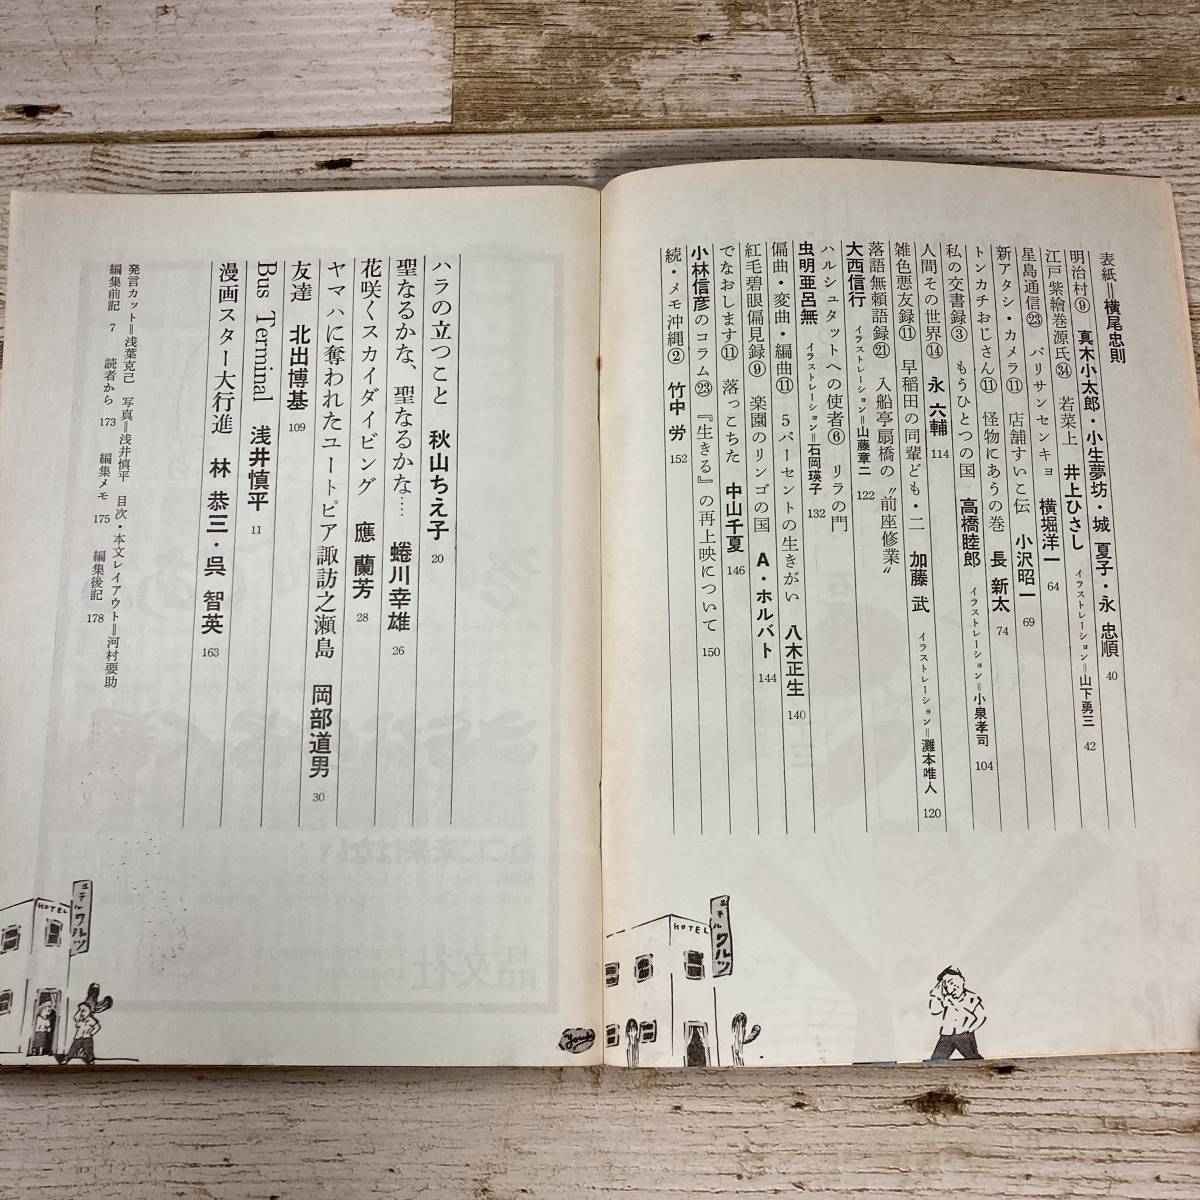 表紙＝横尾忠則
明治村⑨　真木小太郎・小生夢坊・城　夏子・永　忠順　40
江戸紫繪巻源氏㉞　若菜上　井上ひさし　イラストレーション＝山下勇三　42
星島通信㉓　バリサンセンキョ　横堀洋一　64
新アタシ・カメラ⑪　店舗すいこ伝　小沢昭一　69
トンカチおじさん⑪　怪物にあうの巻　長　新太　74
私の交書録③　もうひとつの国　高橋睦郎　イラストレーション＝小泉孝司　104
人間その世界⑭　永　六輔　114
雑色悪友録⑪　早稲田の同輩ども・二　加藤　武　イラストレーション＝灘本唯人　120
落語無頼語録㉑　入船亭扇橋の〝前座修業〟
大西信行　イラストレーション＝山藤章二　122
ハルシュタットへの使者⑥　リラの門
虫明亜呂無　イラストレーション＝石岡瑛子　132
偏曲・変曲・編曲⑪　5パーセントの生きがい　八木正生　140
紅毛碧眼偏見録⑨　楽園のリンゴの国　A・ホルバト　144
でなおします⑪　落っこちた　中山千夏　146
小林信彦のコラム㉓　『生きる』の再上映について　150
続・メモ沖縄②　竹中　労　152
ハラの立つこと　秋山ちえ子　20
聖なるかな、聖なるかな……　蜷川幸雄　26
花咲くスカイダイビング　應　蘭芳　28
ヤマハに奪われたユートピア諏訪之瀬島　岡部道男　30
友達　北出博基　109
Bus Terminal　浅井慎平　11
漫画スター大行進　林　恭三・呉　智英　163
発言カット＝浅葉克己　写真＝浅井慎平　目次・本文レイアウト＝河村要助
編集前記　7　読者から　173　編集メモ　175　編集後記　178
HOTEL
ホテルワルツ
HOTEL
ホテルワルツ